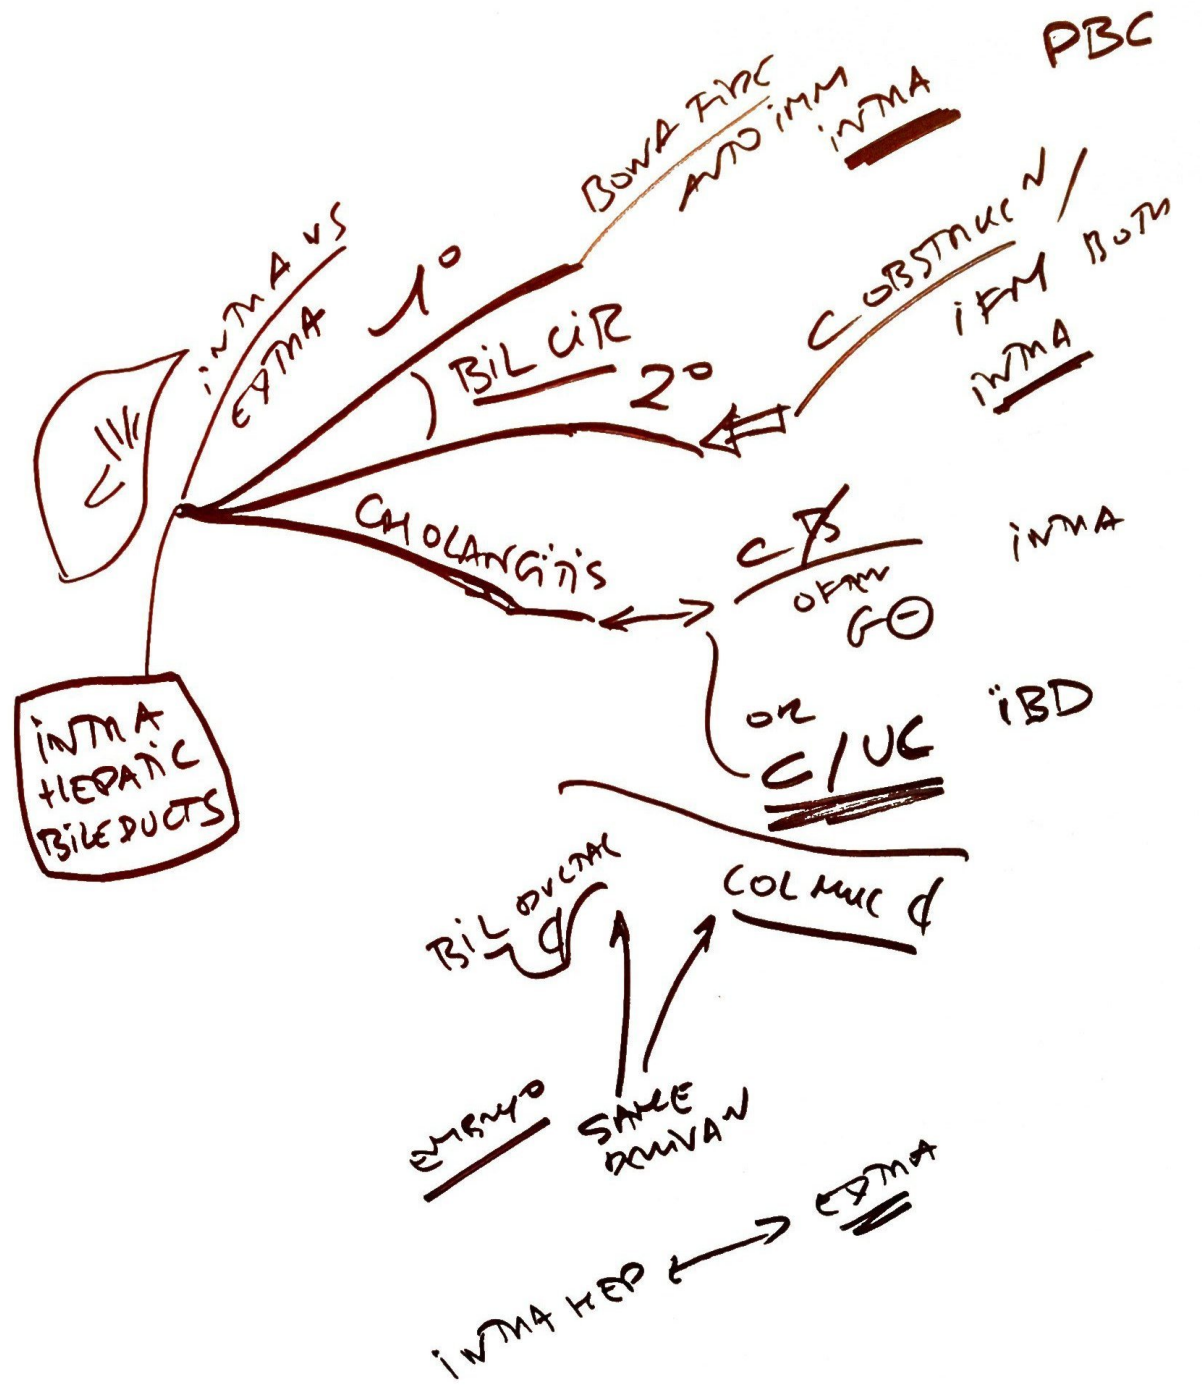 PBC
BONA FIDE
AUTO IMM
INTRA
INTRA VS
EXTRA
1°
BIL CIR
2°
C OBSTRUC N /
IFM BOTH
INTRA
CHOLANGITIS
C B
OFTEN
G ⊖
INTRA
OR
C/UC
IBD
INTRA
HEPATIC
BILE DUCTS
BIL DUCTAL
COL MUC
EMBRYO
SAME
DERIVAN
INTRA HEP ↔ EXTRA